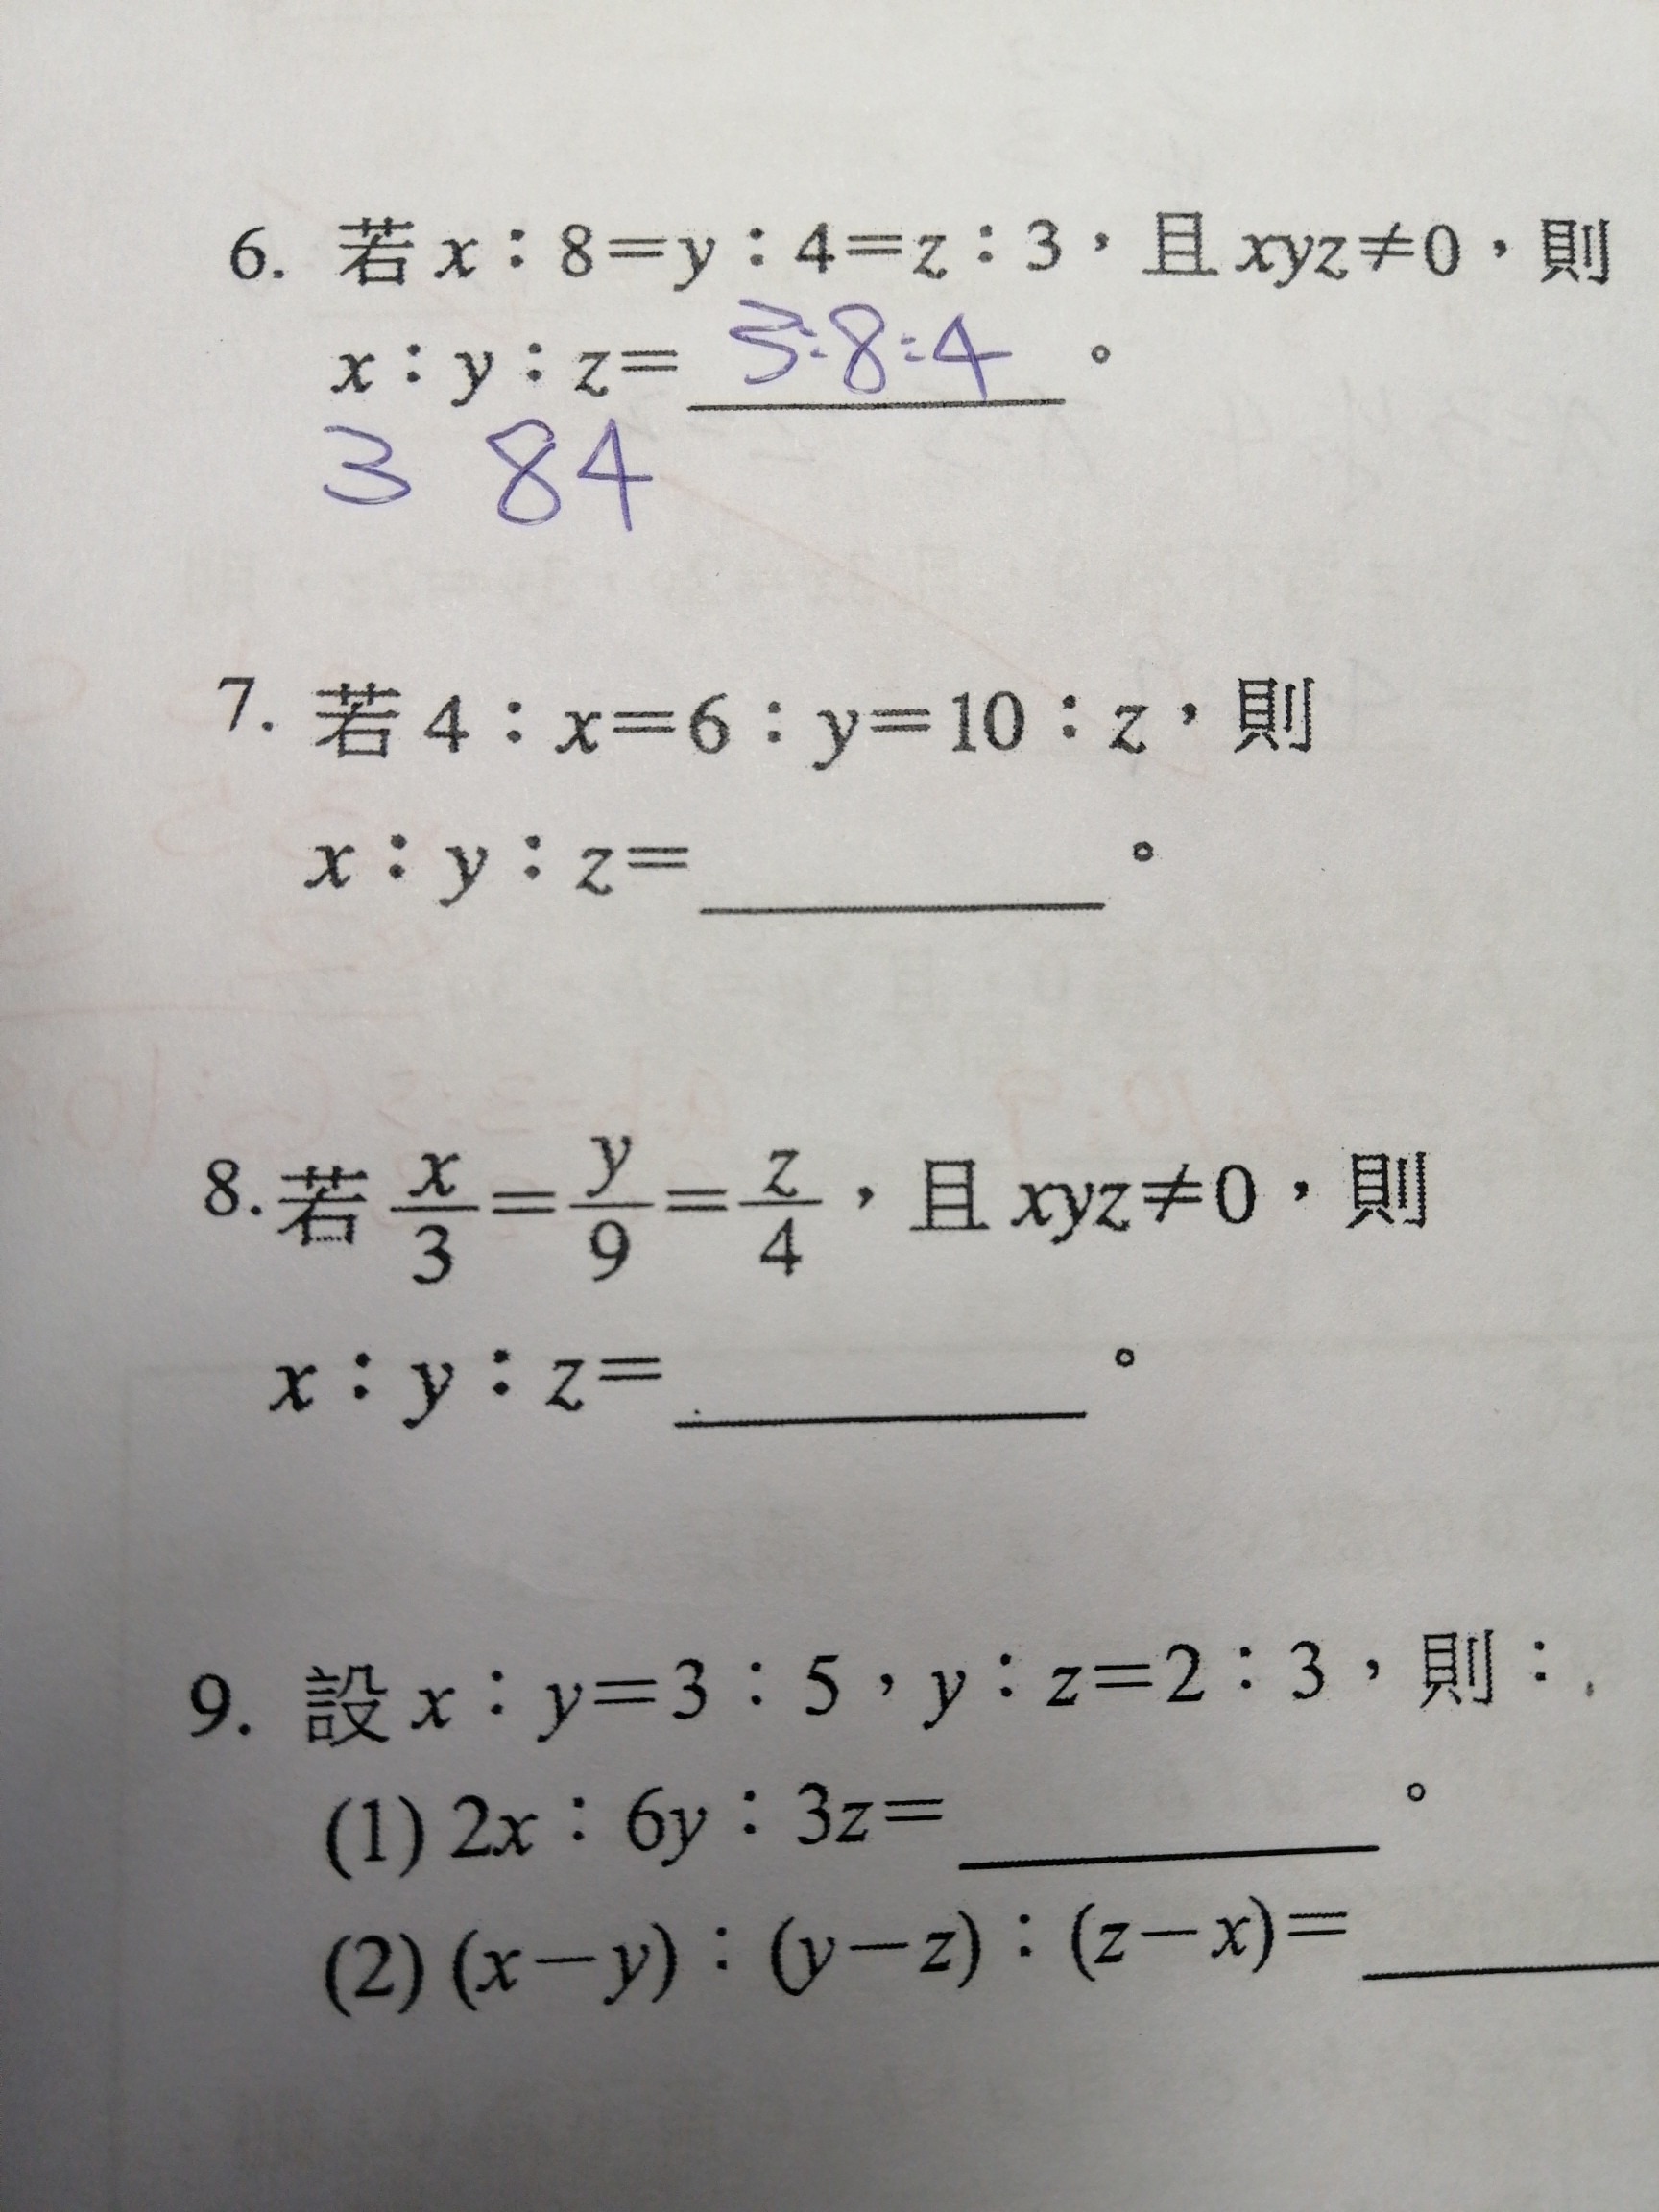 6. 若 x：8＝y：4＝z：3，且 xyz≠0，則
x：y：z＝ 3:8:4 。
3 84
7. 若 4：x＝6：y＝10：z，則
x：y：z＝________。
8. 若 x/3＝y/9＝z/4，且 xyz≠0，則
x：y：z＝________。
9. 設 x：y＝3：5，y：z＝2：3，則：
(1) 2x：6y：3z＝________。
(2) (x－y)：(y－z)：(z－x)＝________